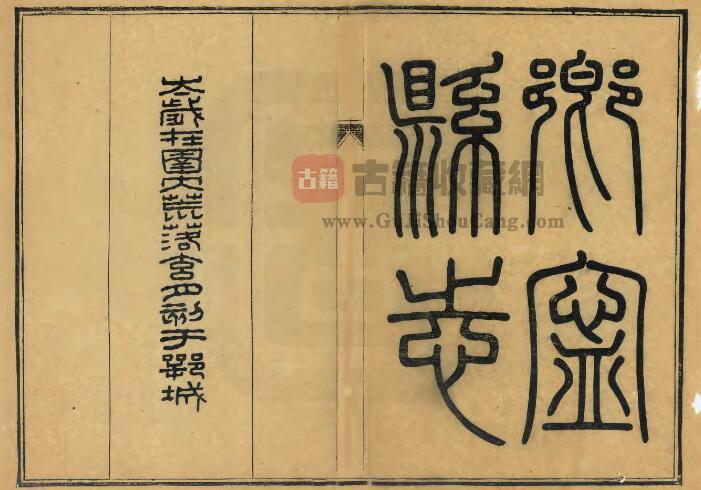 鄉寧
縣志
太歲在圉大荒落玄月刻于鄂城
古籍
古籍收藏網
www.GuJiShouCang.com